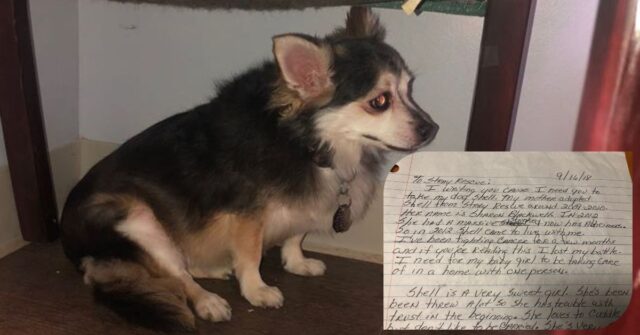 9/16/18
To Stray Rescue:
I writing you cause I need you to
take my dog Shell. My mother adopted
Shell from Stray Rescue around 2009-2010.
Her name is Sharon Blackwell. In 2012
She had a massive now has
So in 2012 Shell came to live with me.
I've been fighting cancer for a few months
and if you're reading this I lost my battle.
I need for my baby girl to be taking care
of in a home with one person.
Shell is a very sweet girl. She's been
been threw alot so she has trouble with
trust in the beginning. She loves to cuddle
don't like to be She's very